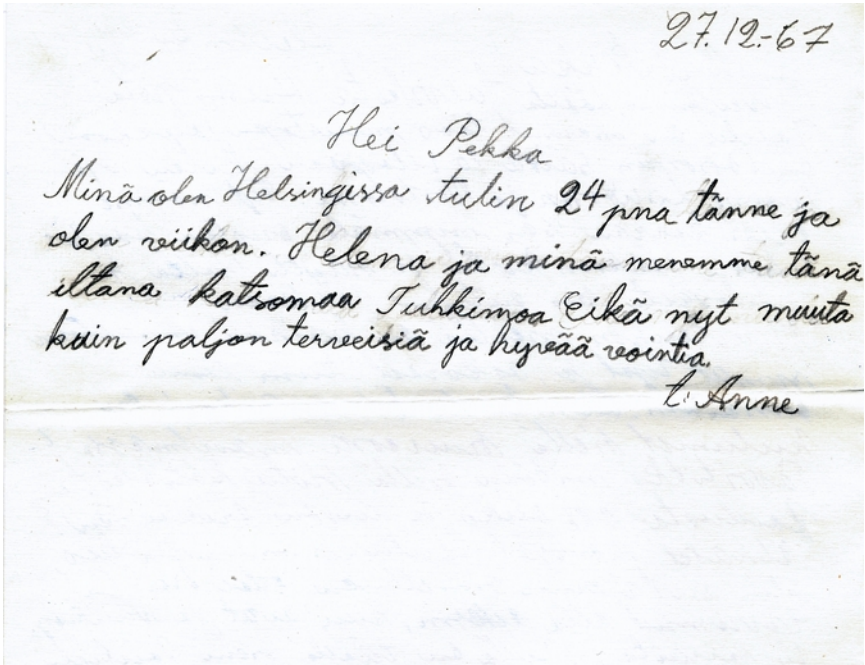 27.12.-67
Hei Pekka
Minä olen Helsingissa tulin 24 pna tänne ja
olen viikon. Helena ja minä menemme tänä
iltana katsomaa Tuhkimoa Eikä nyt muuta
kuin paljon terveisiä ja hyvää vointia.
t. Anne